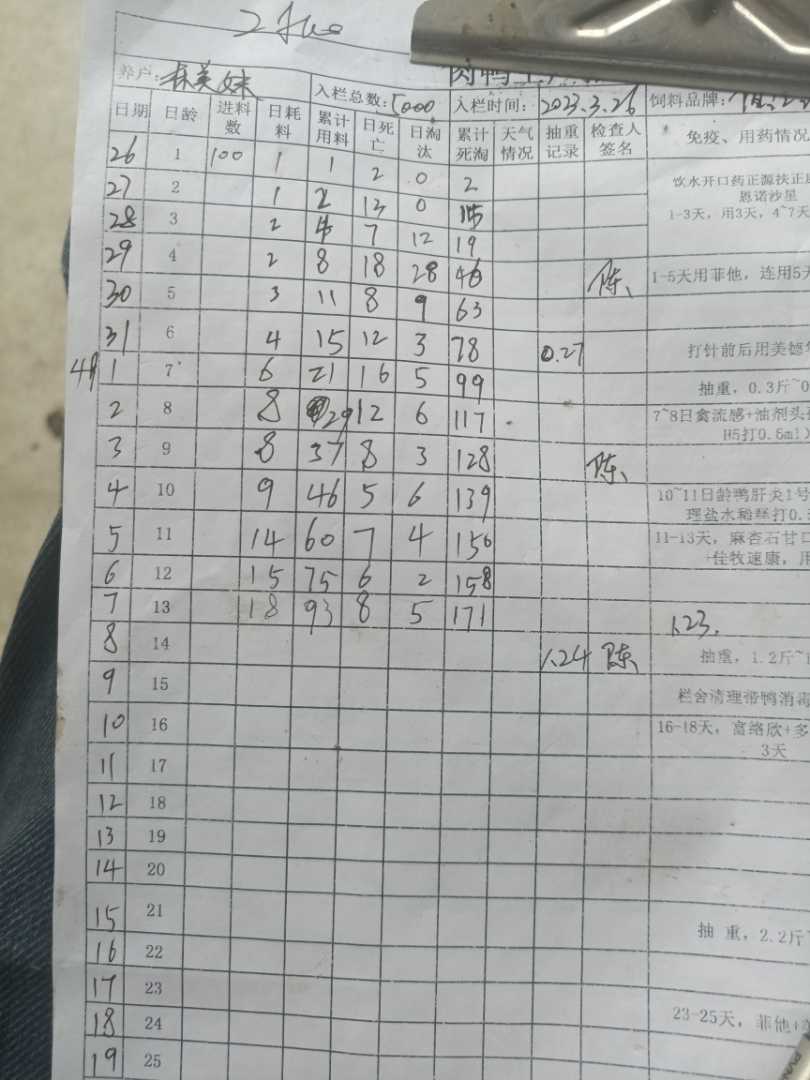 养户: 林美妹 入栏总数: 5000 入栏时间: 2023.3.26 饲料品牌:
日期 日龄 进料数 日耗料 累计用料 日死亡 日淘汰 累计死淘 天气情况 抽重记录 检查人签名 免疫、用药情况
26 1 100 1 1 2 0 2
饮水开口药正源扶正
恩诺沙星
27 2 1 2 13 0 15
1-3天, 用3天, 4~7天
28 3 2 4 7 12 19
29 4 2 8 18 28 46 陈 1-5天用菲他, 连用5天
30 5 3 11 8 9 63
31 6 4 15 12 3 78 0.27 打针前后用美德
4月
1 7 6 21 16 5 99 抽重, 0.3斤~0
2 8 8 29 12 6 117 7~8日禽流感+油剂头孢
H5打0.5ml
3 9 8 37 8 3 128 陈
4 10 9 46 5 6 139 10~11日龄鸭肝炎1号
理盐水稀释打0.
5 11 14 60 7 4 150 11-13天, 麻杏石甘口
+佳牧速康, 用
6 12 15 75 6 2 158
7 13 18 93 8 5 171 1.23.
8 14 1.24 陈 抽重, 1.2斤~
9 15 栏舍清理带鸭消毒
10 16 16-18天, 富络欣+多
3天
11 17
12 18
13 19
14 20
15 21 抽 重, 2.2斤
16 22
17 23
18 24 23-25天, 菲他+
19 25